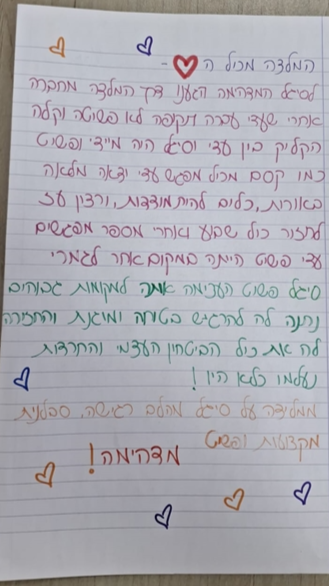 המלצה מכל ה ❤️ -
לסיגל המדהימה הגענו דרך המלצה מחברה
אחרי שעדי עברה תקופה לא פשוטה וקלה
הקליק בין עדי וסיגל היה מיידי ופשוט
כמו קסם מכל מפגש עדי יצאה מלאה
באנרגיות, כלים להתמודדות, ורצון עז
לחזור כל שבוע ואחרי מספר מפגשים
עדי פשוט היתה במקום אחר לגמרי
סיגל פשוט העצימה אותה למקומות גבוהים
נתנה לה להרגיש בטוחה ומוגנת והחזירה
לה את כל הביטחון העצמי והחרדות
נעלמו כלא היו!
ממליצה על סיגל מהלב רגישה, סבלנית
מקצועית ופשוט
מדהימה!